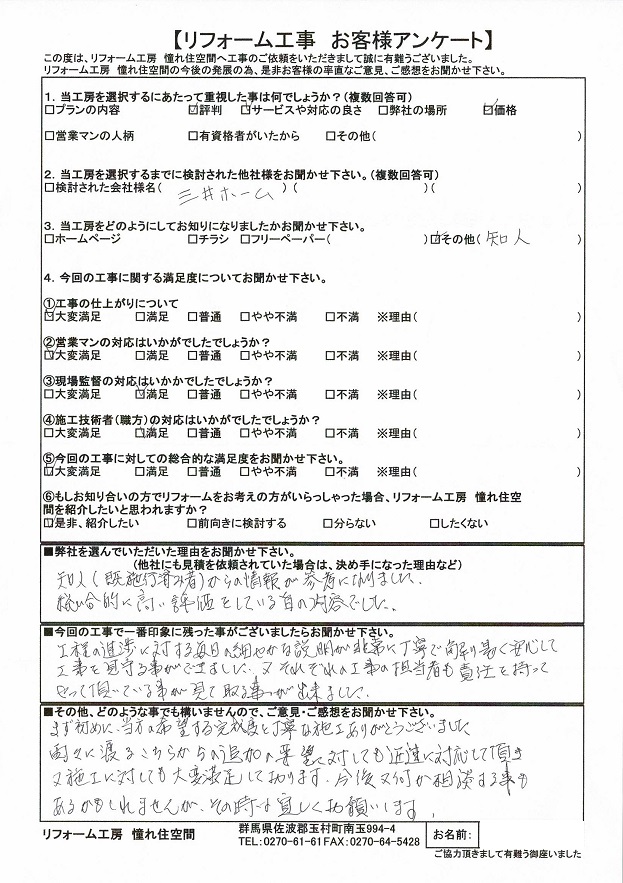 【リフォーム工事　お客様アンケート】
この度は、リフォーム工房　憧れ住空間へ工事のご依頼をいただきまして誠に有難うございました。
リフォーム工房　憧れ住空間の今後の発展の為、是非お客様の率直なご意見、ご感想をお聞かせ下さい。
1．当工房を選択するにあたって重視した事は何でしょうか？(複数回答可)
□プランの内容　☑評判　☑サービスや対応の良さ　□弊社の場所　☑価格
□営業マンの人柄　□有資格者がいたから　□その他(　)
2．当工房を選択するまでに検討された他社様をお聞かせ下さい。(複数回答可)
□検討された会社様名(　三井ホーム　)(　)(　)
3．当工房をどのようにしてお知りになりましたかお聞かせ下さい。
□ホームページ　□チラシ　□フリーペーパー(　)☑その他(　知人　)
4．今回の工事に関する満足度についてお聞かせ下さい。
①工事の仕上がりについて
☑大変満足　□満足　□普通　□やや不満　□不満　※理由(　)
②営業マンの対応はいかがでしたでしょうか？
☑大変満足　□満足　□普通　□やや不満　□不満　※理由(　)
③現場監督の対応はいかかでしたでしょうか？
□大変満足　☑満足　□普通　□やや不満　□不満　※理由(　)
④施工技術者(職方)の対応はいかがでしたでしょうか？
□大変満足　☑満足　□普通　□やや不満　□不満　※理由(　)
⑤今回の工事に対しての総合的な満足度をお聞かせ下さい。
☑大変満足　□満足　□普通　□やや不満　□不満　※理由(　)
⑥もしお知り合いの方でリフォームをお考えの方がいらっしゃった場合、リフォーム工房　憧れ住空
間を紹介したいと思われますか？
☑是非、紹介したい　□前向きに検討する　□分らない　□したくない
■弊社を選んでいただいた理由をお聞かせ下さい。
(他社にも見積を依頼されていた場合は、決め手になった理由など)
知人(既施行済み者)からの情報が参考になりました。
総合的に高い評価をしている旨の内容でした。
■今回の工事で一番印象に残った事がございましたらお聞かせ下さい。
工程の進渉に対する毎日の細やかな説明が非常に丁寧で解り易く安心して
工事を見守る事ができました。又それぞれの工事の担当者も責任を持って
やって頂いている事が見て取る事が出来ました。
■その他、どのような事でも構いませんので、ご意見・ご感想をお聞かせ下さい。
まず初めに、当方の希望する完成度と丁寧な施工ありがとうございました
度々に渡るこちらからの追加の要望に対しても迅速に対応して頂き
又施工に対しても大変満足しております。今後又何か相談する事も
あるかもしれませんが、その時は宜しくお願いします。
リフォーム工房　憧れ住空間
群馬県佐波郡玉村町南玉994-4
TEL:0270-61-61FAX:0270-64-5428
お名前:
ご協力頂きまして有難う御座いました